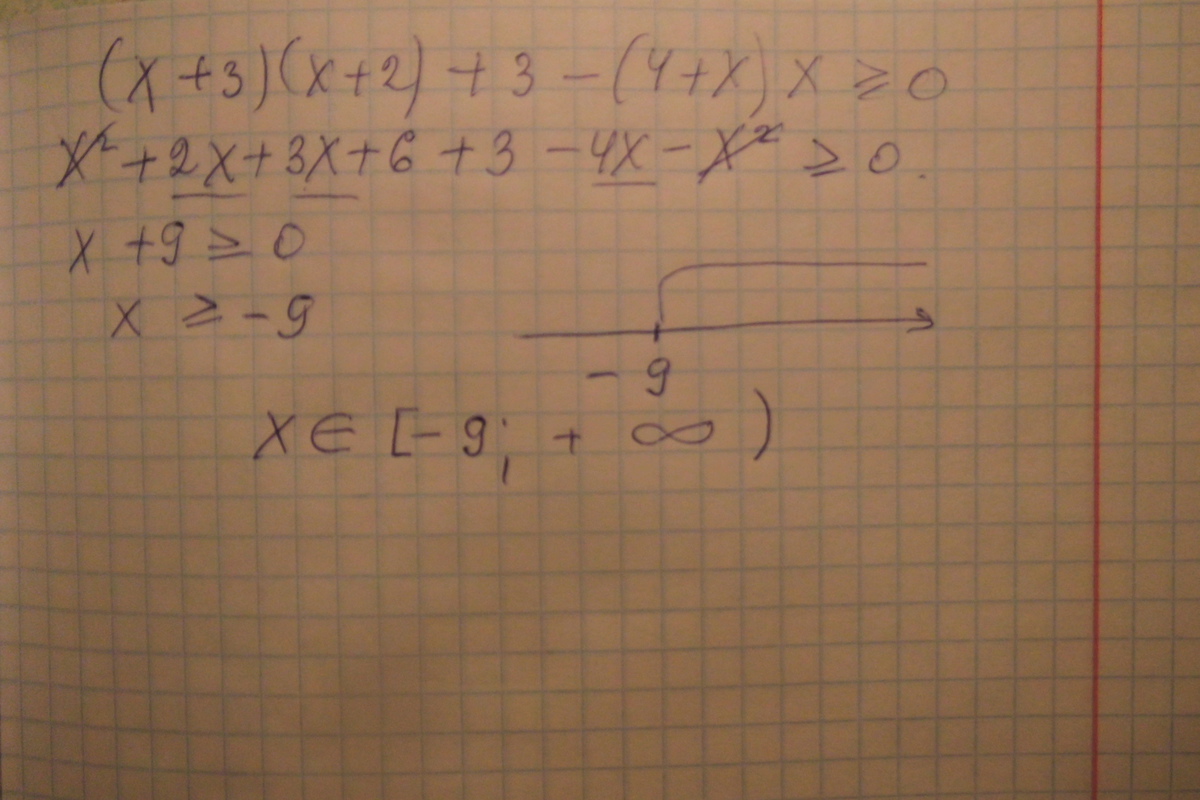 (x+3)(x+2)+3-(4+x)x ≥ 0
x²+2x+3x+6+3-4x-x² ≥ 0.
x+9 ≥ 0
x ≥ -9
-9
x ∈ [-9; +∞)